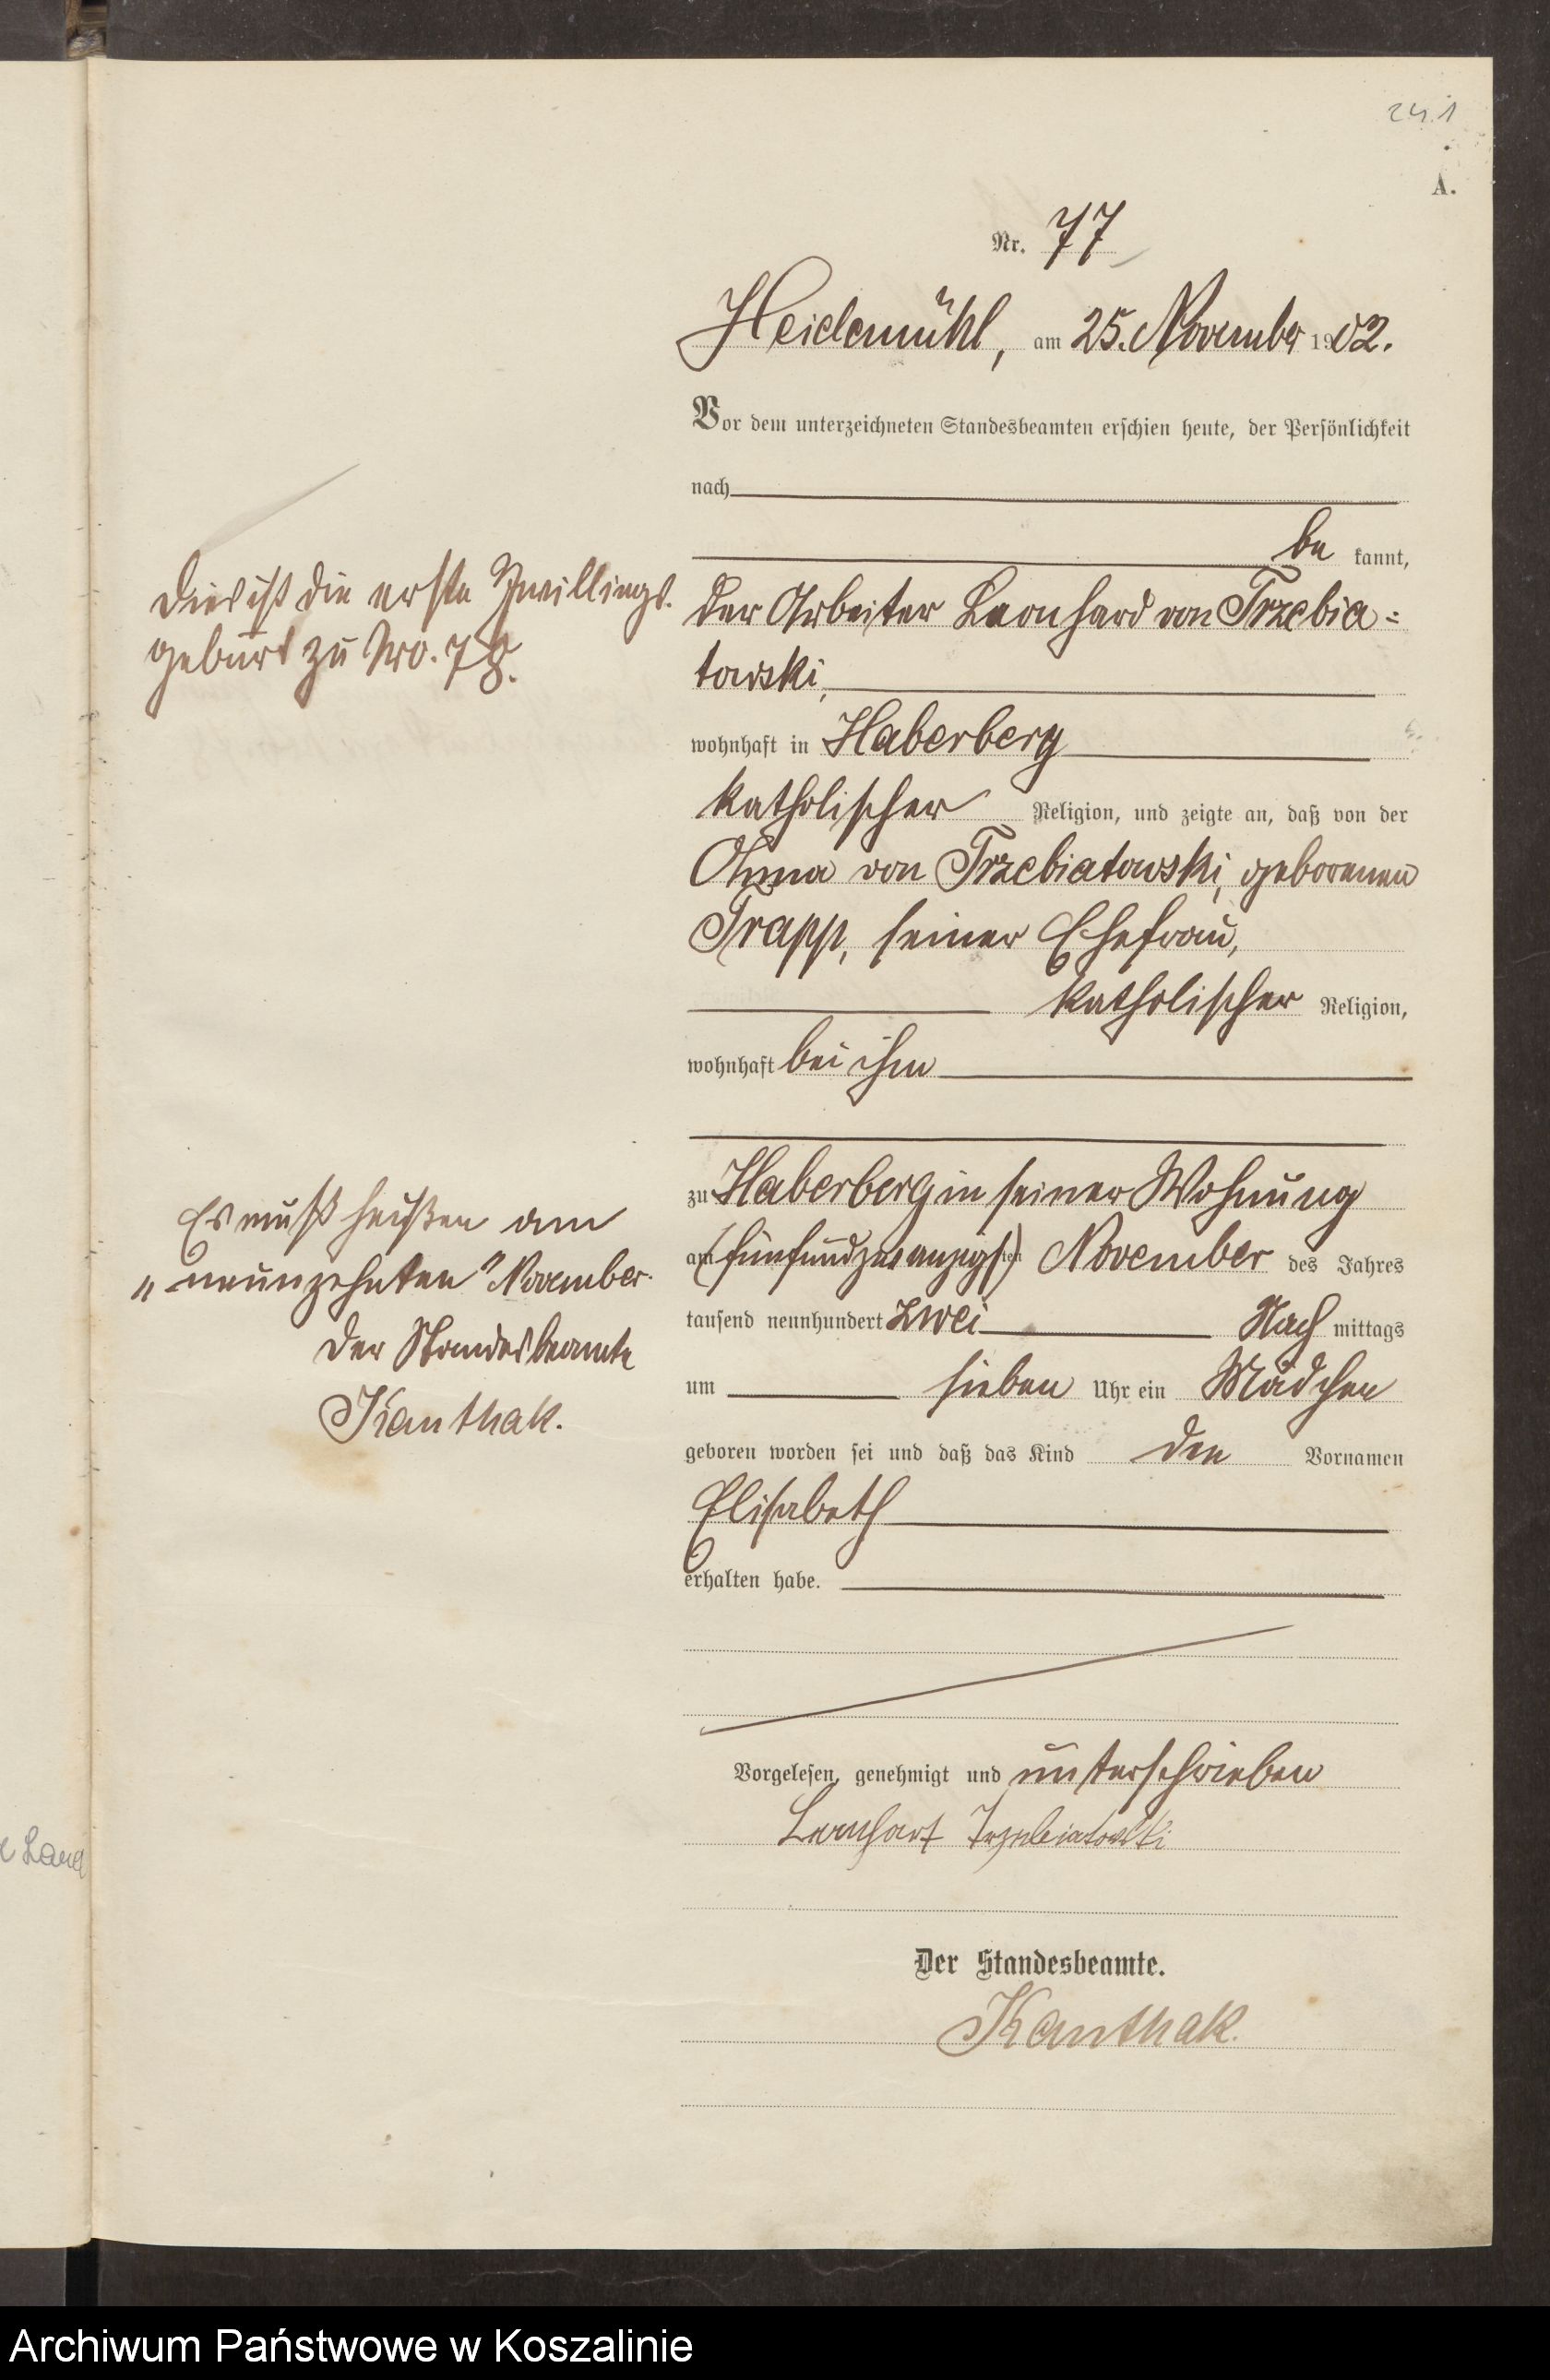 241
A.
Nr. 77
Heidemühl, am 25. November 1902.
Vor dem unterzeichneten Standesbeamten erschien heute, der Persönlichkeit
nach
be kannt,
Dies ist die erste Zwillings-
geburt zu Nro. 78.
der Arbeiter Leonhard von Trzebia=
towski,
wohnhaft in Haberberg
katholischer Religion, und zeigte an, daß von der
Anna von Trzebiatowski, geborenen
Trapp, seiner Ehefrau,
katholischer Religion,
wohnhaft bei ihm
zu Haberberg in seiner Wohnung
Es muß heißen am
„neunzehnten" November.
Der Standesbeamte
Kanthak.
am (fünfundzwanzigsten) November des Jahres
tausend neunhundert zwei Nach mittags
um sieben Uhr ein Mädchen
geboren worden sei und daß das Kind den Vornamen
Elisabeth
erhalten habe.
Vorgelesen, genehmigt und unterschrieben
Leonhart Trzebiatowski
Der Standesbeamte.
Kanthak.
Archiwum Państwowe w Koszalinie